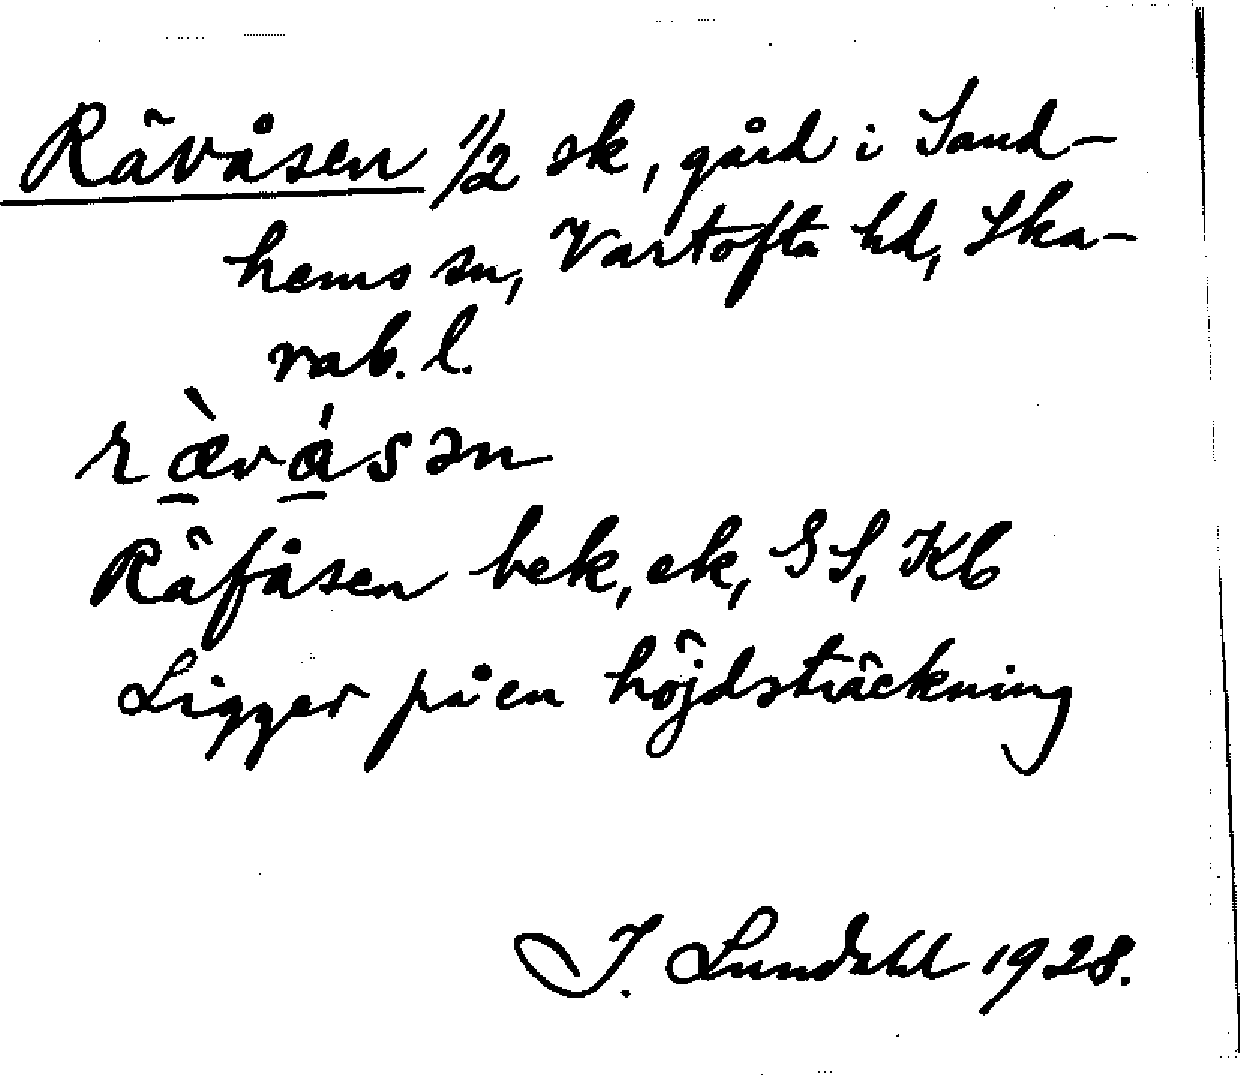 Rävåsen 1/2 sk, gård i Sand-
hems sn, Vartofta hd, Ska-
rab. l.
ræ̀vásən
Räfåsen bek, ek, GS, Kb
Ligger på en höjdsträckning
I. Lundahl 1928.